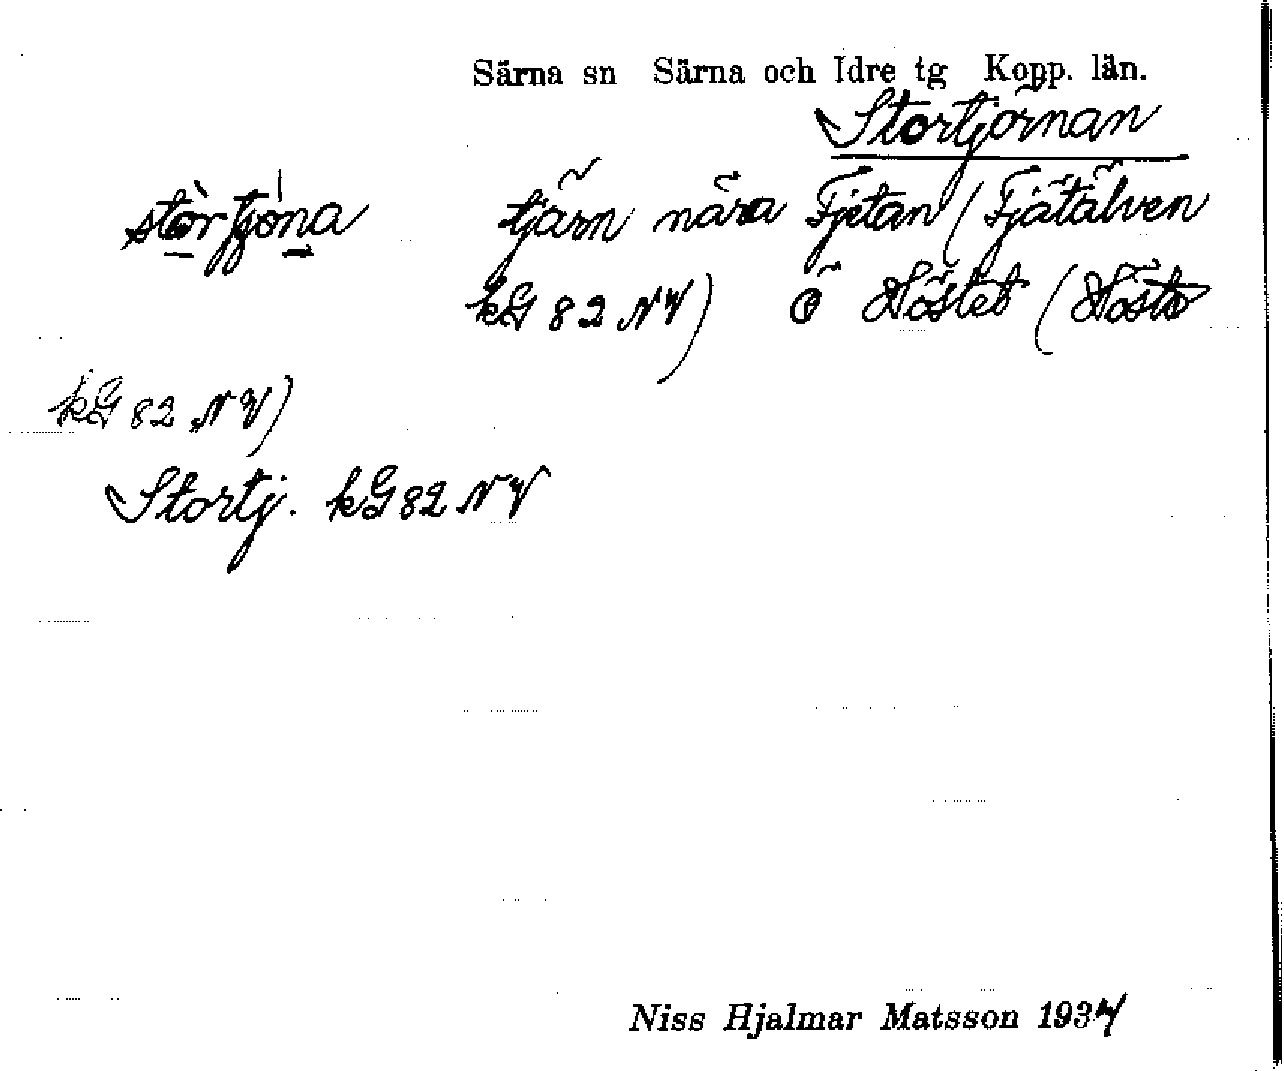 Särna sn Särna och Idre tg Kopp. län.
Stortjörnan
stòrtjöna tjärn nära Fjetan (Fjätälven
kG 82 NV) Ö Höstet (Hösta
kG 82 NV)
Stortj. kG 82 NV
Niss Hjalmar Matsson 1934